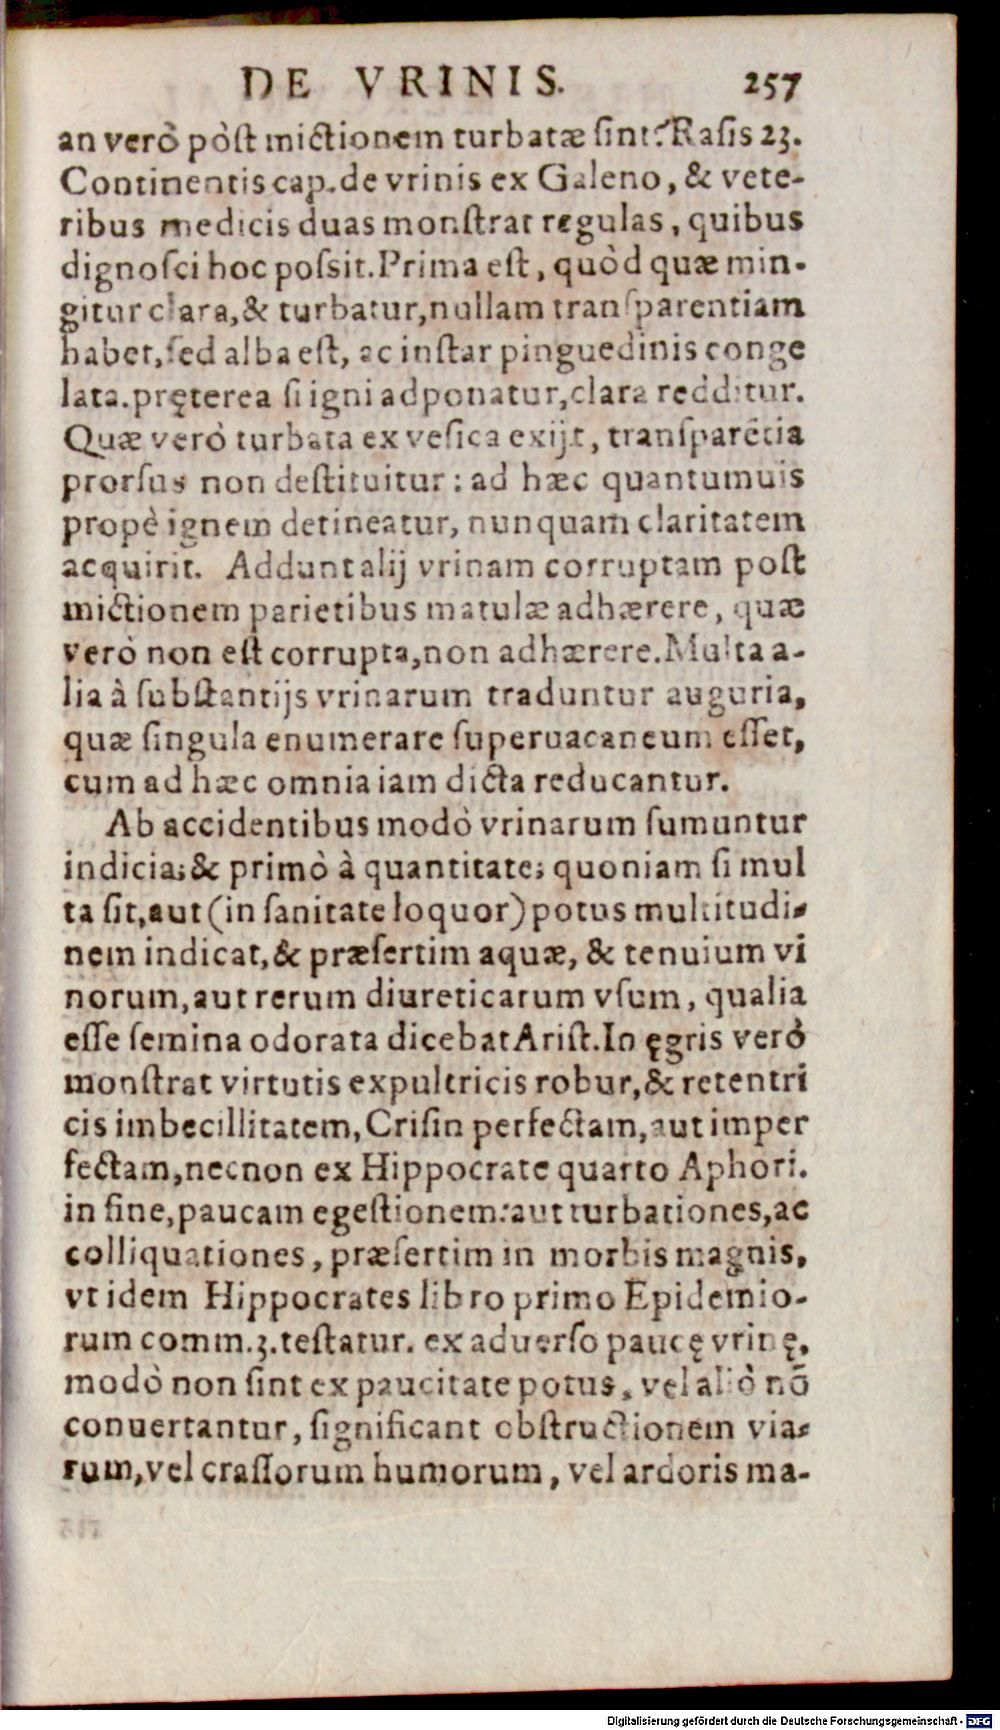 DE VRINIS. 257
an verò pòst mictionem turbatæ sint? Rasis 23.
Continentis cap. de vrinis ex Galeno, & vete-
ribus medicis duas monstrat regulas, quibus
dignosci hoc possit. Prima est, quòd quæ min-
gitur clara, & turbatur, nullam transparentiam
habet, sed alba est, ac instar pinguedinis conge
lata. pręterea si igni adponatur, clara redditur.
Quæ verò turbata ex vesica exijt, transparẽtia
prorsus non destituitur: ad hæc quantumuis
propè ignem detineatur, nunquam claritatem
acquirit. Addunt alij vrinam corruptam post
mictionem parietibus matulæ adhærere, quæ
verò non est corrupta, non adhærere. Multa a-
lia à substantijs vrinarum traduntur auguria,
quæ singula enumerare superuacaneum esset,
cum ad hæc omnia iam dicta reducantur.
Ab accidentibus modò vrinarum sumuntur
indicia; & primò à quantitate; quoniam si mul
ta sit, aut (in sanitate loquor) potus multitudi-
nem indicat, & præsertim aquæ, & tenuium vi
norum, aut rerum diureticarum vsum, qualia
esse semina odorata dicebat Arist. In ęgris verò
monstrat virtutis expultricis robur, & retentri
cis imbecillitatem, Crisin perfectam, aut imper
fectam, necnon ex Hippocrate quarto Aphori.
in fine, paucam egestionem: aut turbationes, ac
colliquationes, præsertim in morbis magnis,
vt idem Hippocrates libro primo Epidemio-
rum comm. 3. testatur. ex aduerso paucę vrinę,
modò non sint ex paucitate potus, vel aliò nō
conuertantur, significant obstructionem via-
rum, vel crassorum humorum, vel ardoris ma-
Digitalisierung gefördert durch die Deutsche Forschungsgemeinschaft - DFG